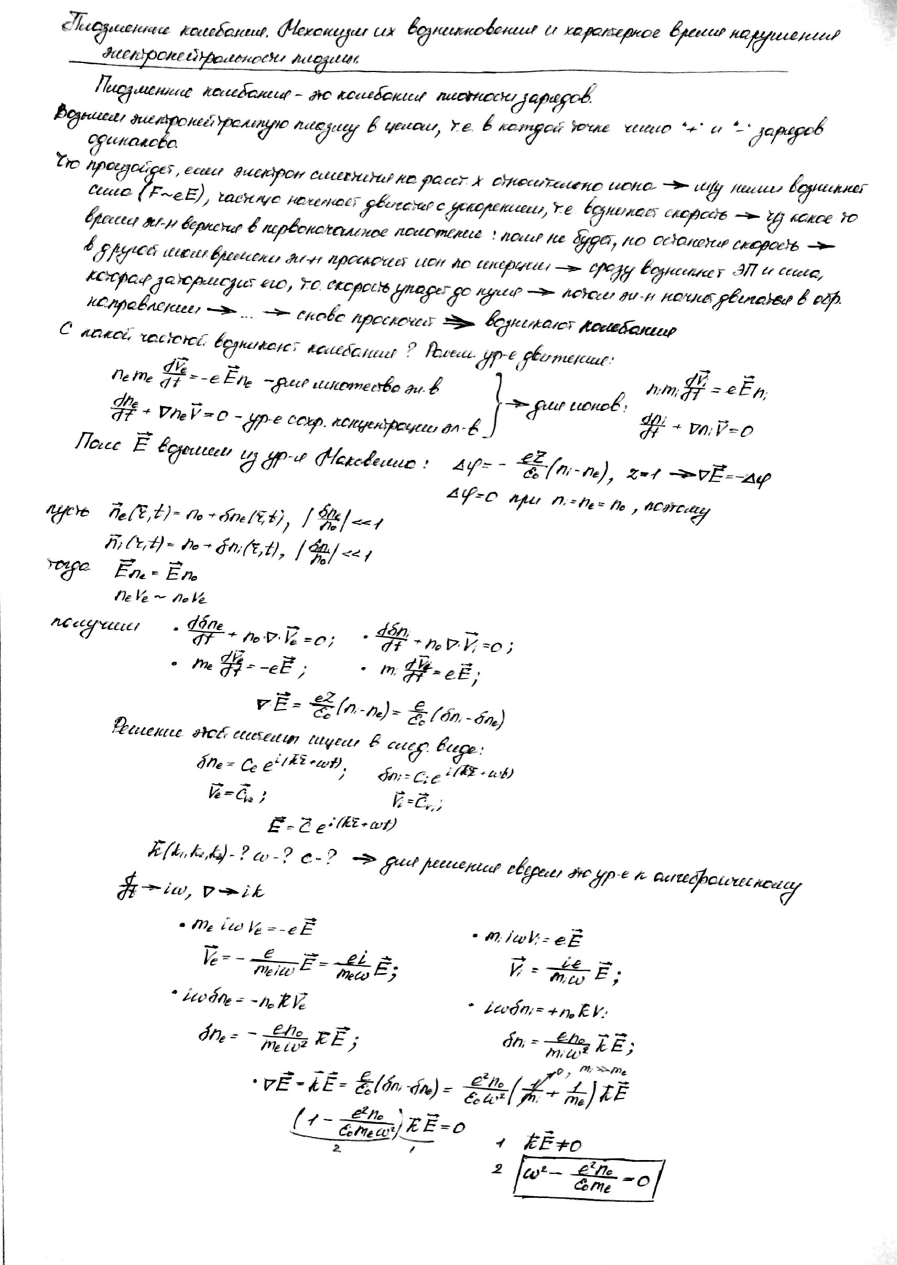 Плазменные колебания. Механизм их возникновения и характерное время нарушения
электронейтральности плазмы.
Плазменные колебания – это колебания плотности зарядов.
Возьмем электронейтральную плазму в целом, т.е. в каждой точке число "+" и "-" зарядов
одинаково.
Что произойдет, если электрон сместится на расст. x относительно иона → м/у ними возникнет
сила (F~eE), частица начинает двигаться с ускорением, т.е возникает скорость → ч/з какое то
время эл-н вернется в первоначальное положение: поля не будет, но останется скорость →
в другой мом. времени эл-н проскочит ион по инерции → сразу возникнет ЭП и сила,
которая затормозит его, т.о. скорость упадет до нуля → потом эл-н начнет двигаться в обр.
направлении → ... → снова проскочит ⇒ возникают колебания
С какой частотой возникают колебания? Реш. ур-е движения:
nₑmₑ dV⃗ₑ/dt = -eE⃗nₑ – для множества эл-в } → для ионов: nᵢmᵢ dV⃗ᵢ/dt = eE⃗nᵢ
dnₑ/dt + ∇nₑV⃗ = 0 – ур-е сохр. концентрации эл-в dnᵢ/dt + ∇nᵢV⃗ = 0
Поле E⃗ возьмем из ур-я Максвелла: Δφ = - eZ/ε₀ (nᵢ-nₑ), z=1 → ∇E⃗ = -Δφ
Δφ=0 при nᵢ=nₑ=n₀, поэтому
пусть n⃗ₑ(r⃗,t) = n₀ + δnₑ(r⃗,t), |δnₑ/n₀| <<1
n⃗ᵢ(r,t) = n₀ + δnᵢ(r⃗,t), |δnᵢ/n₀| <<1
тогда E⃗nₑ = E⃗n₀
nₑVₑ ~ n₀Vₑ
получим • dδnₑ/dt + n₀·∇·V⃗ₑ = 0; • dδnᵢ/dt + n₀∇·V⃗ᵢ = 0;
• mₑ dV⃗ₑ/dt = -eE⃗; • mᵢ dV⃗ᵢ/dt = eE⃗;
∇E⃗ = eZ/ε₀ (nᵢ-nₑ) = e/ε₀ (δnᵢ-δnₑ)
Решение этой системы ищем в след. виде:
δnₑ = Cₑ e^{i(k⃗r⃗+ωt)}; δnᵢ = Cᵢ e^{i(k⃗r⃗+ωt)}
V⃗ₑ = C⃗ᵥₑ; V⃗ᵢ = C⃗ᵥᵢ;
E⃗ = C⃗ e^{i(k⃗r⃗+ωt)}
k⃗(k₁,k₂,k₃)-? ω-? c-? → для решения сведем это ур-е к алгебраическому
d/dt → iω, ∇ → ik
• mₑ iωVₑ = -eE⃗ • mᵢ iωVᵢ = eE⃗
V⃗ₑ = - e/(mₑiω) E⃗ = ei/(mₑω) E⃗; V⃗ᵢ = ie/(mᵢω) E⃗;
• iωδnₑ = -n₀k⃗V⃗ₑ • iωδnᵢ = +n₀k⃗Vᵢ
δnₑ = - en₀/(mₑiω²) k⃗E⃗; δnᵢ = en₀/(mᵢω²) k⃗E⃗;
• ∇E⃗ - k⃗E⃗ = e/ε₀ (δnᵢ-δnₑ) = e²n₀/(ε₀ω²) (1/mᵢ + 1/mₑ) k⃗E⃗ 0, mᵢ>>mₑ
(1 - e²n₀/(ε₀mₑω²)) k⃗E⃗ = 0
2 1
1 k⃗E⃗ ≠ 0
2 ω² - e²n₀/(ε₀mₑ) = 0